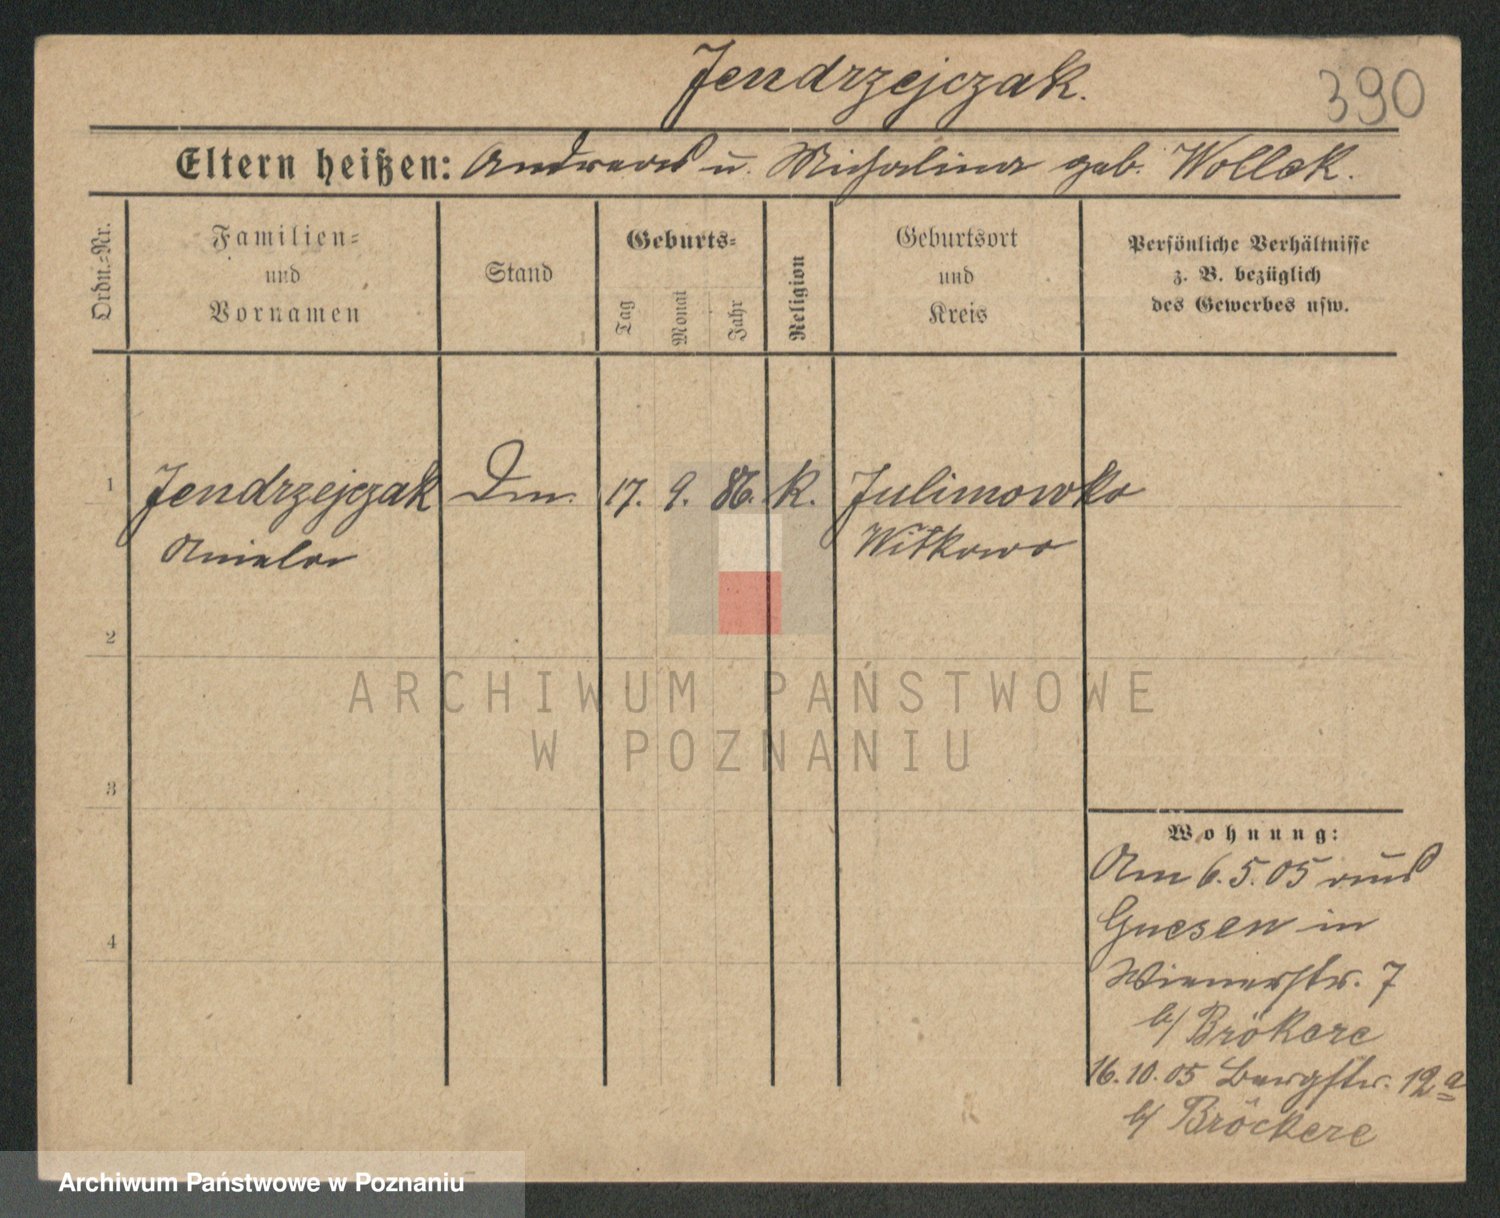 Jendrzejczak.
390
Eltern heißen: Andreas u. Michalina geb. Wollek.
Ordn.-Nr.
Familien-
und
Vornamen
Stand
Geburts-
Tag
Monat
Jahr
Religion
Geburtsort
und
Kreis
Persönliche Verhältnisse
z. B. bezüglich
des Gewerbes usw.
1 Jendrzejczak Dm. 17. 9. 86. k. Julimowko
Aniela Witkowo
2
3
4
ARCHIWUM PAŃSTWOWE
W POZNANIU
Wohnung:
Am 6.5.05 aus
Gnesen in
Wienerstr. 7
b/ Brökere
16.10.05 Bergstr. 12a
b/ Bröckere
Archiwum Państwowe w Poznaniu